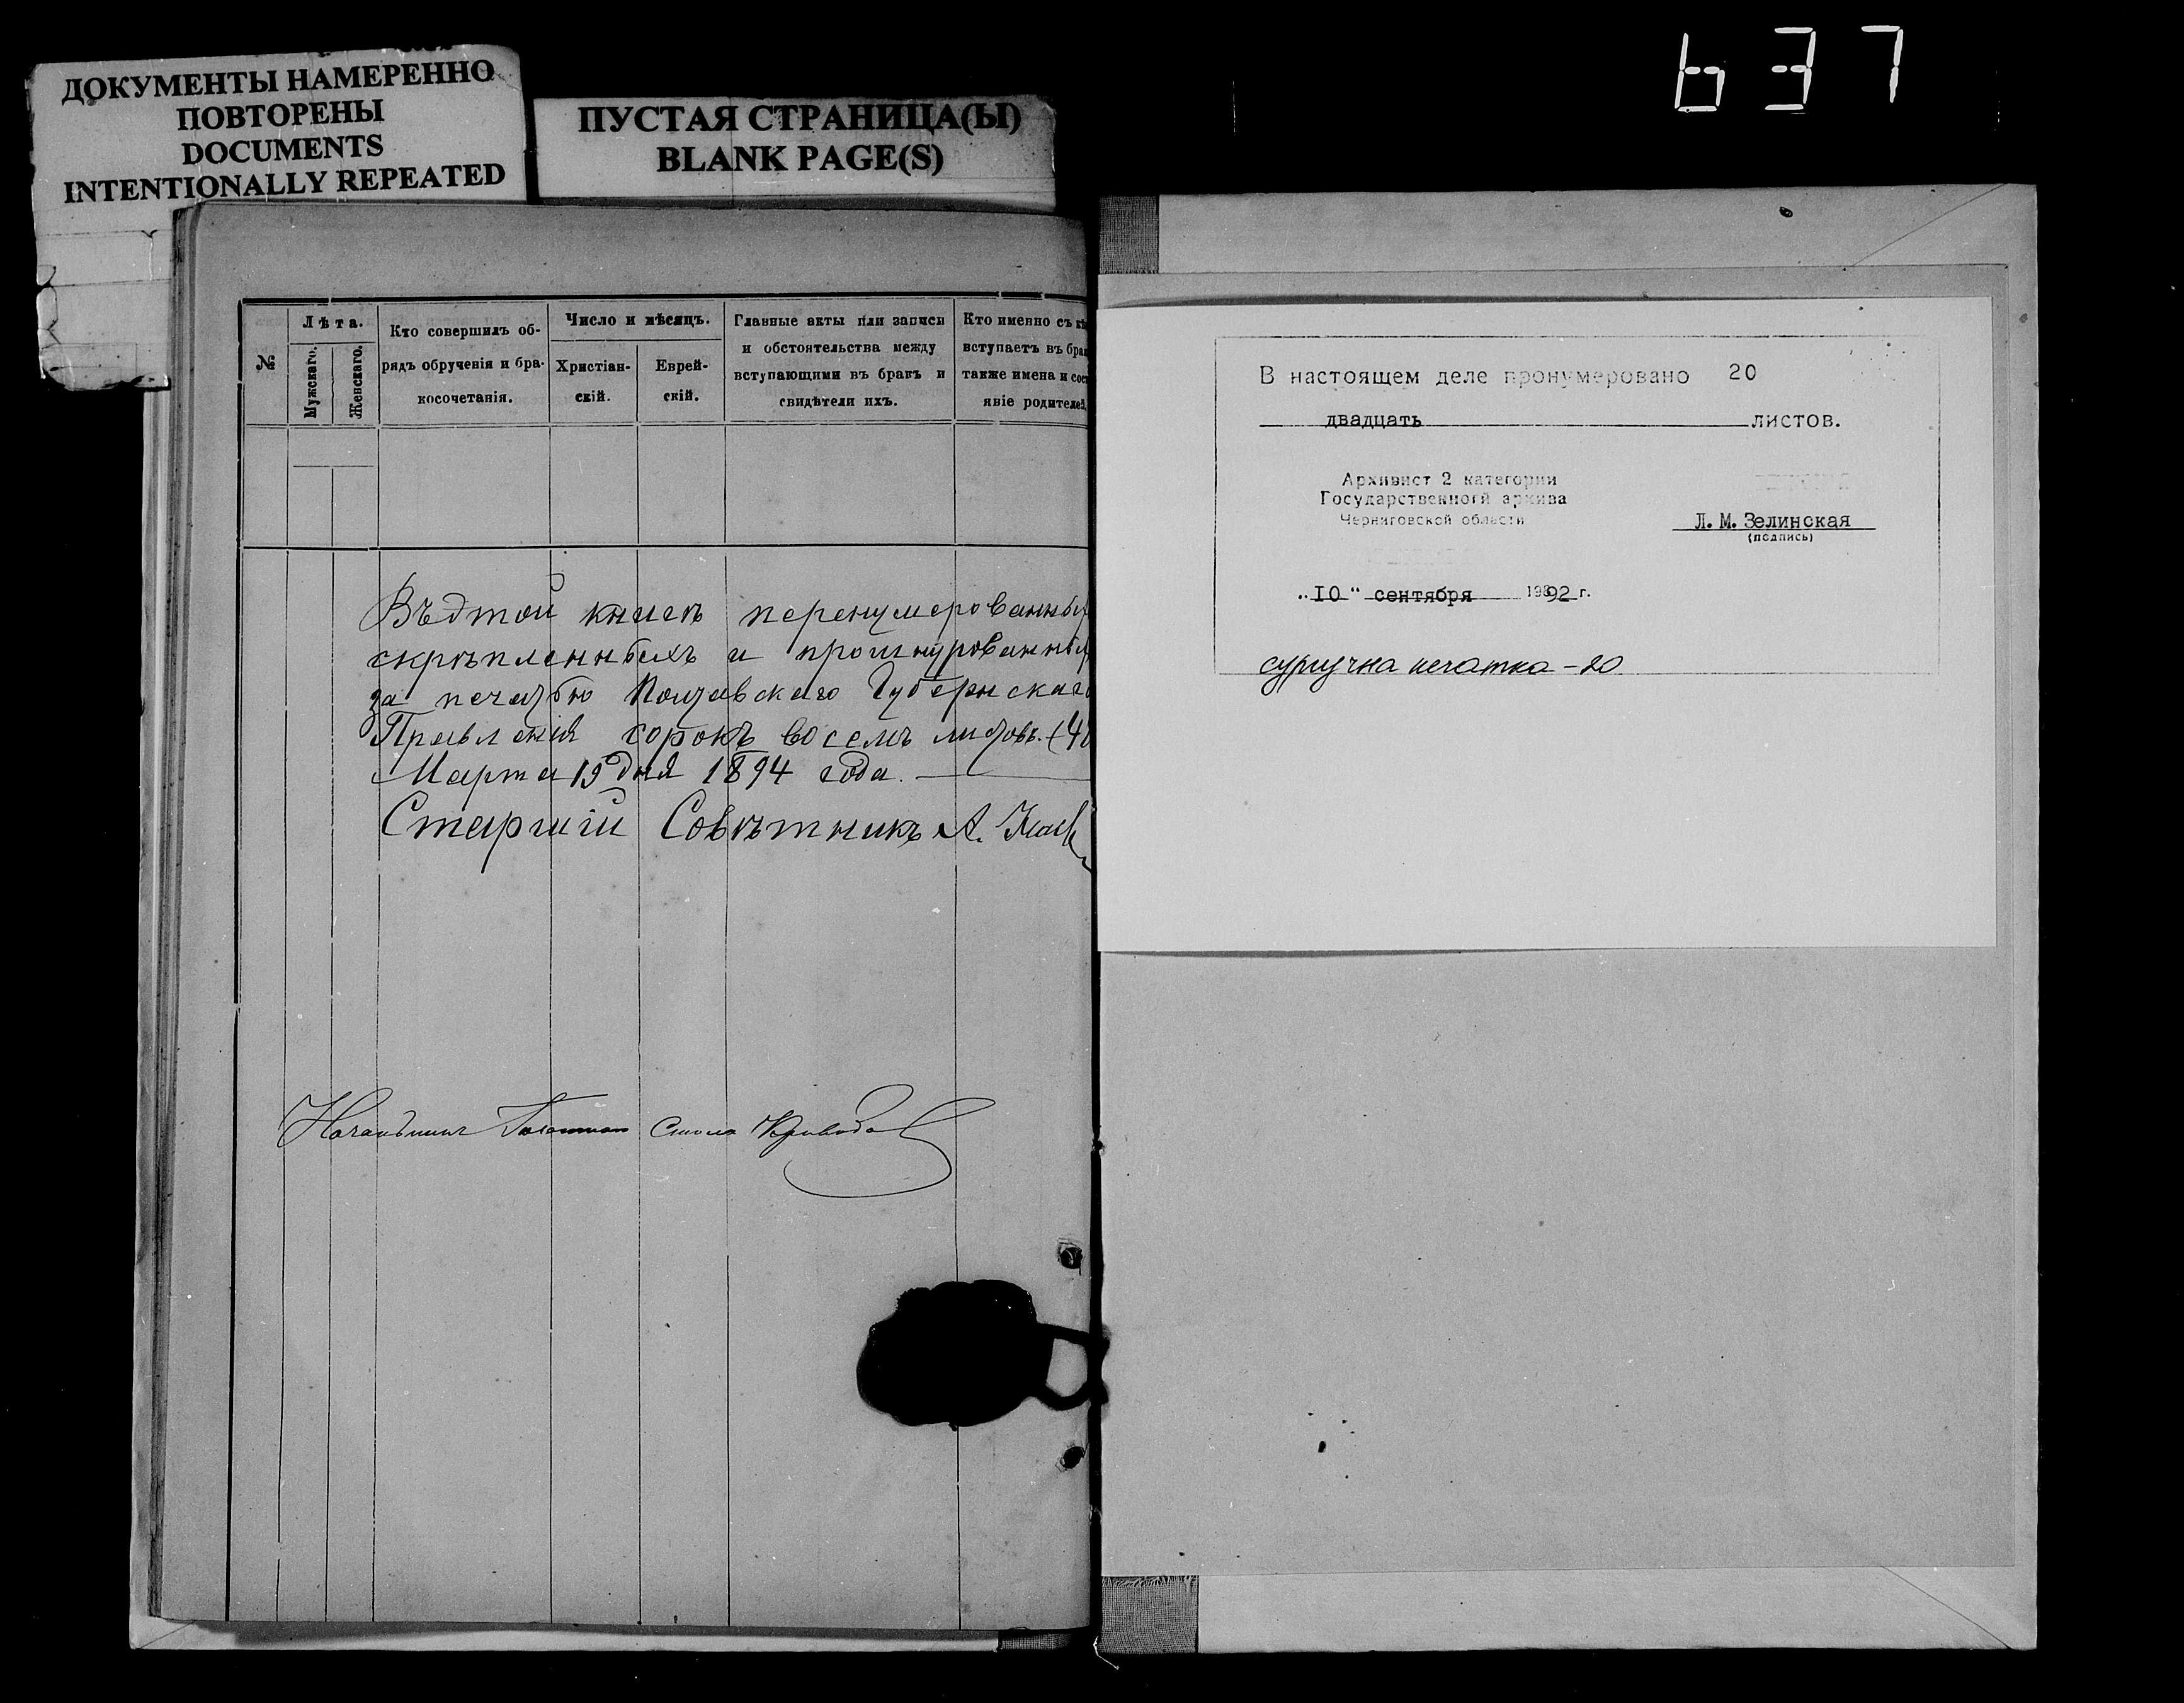 637
ДОКУМЕНТЫ НАМЕРЕННО
ПОВТОРЕНЫ
DOCUMENTS
INTENTIONALLY REPEATED
ПУСТАЯ СТРАНИЦА(Ы)
BLANK PAGE(S)
№
Лѣта.
Мужскаго.
Женскаго.
Кто совершилъ об-
рядъ обрученія и бра-
косочетанія.
Число и мѣсяцъ.
Христіан-
скій.
Еврей-
скій.
Главные акты или записи
и обстоятельства между
вступающими въ бракъ и
свидѣтели ихъ.
Кто именно съ
вступаетъ въ
также имена и
яніе родителей
Въ этой книгѣ перенумерованныхъ
скрѣпленныхъ и прошнурованныхъ
за печатью Полтавскаго Губернскаго
Правленія сорокъ восемь листовъ. (48
Марта 19 дня 1894 года.
Старшій Совѣтникъ А.
Начальникъ Газетнаго Стола
В настоящем деле пронумеровано 20
двадцать листов.
Архивист 2 категории
Государственногй архива
Черниговской области
Л.М.Зелинская
(подпись)
"10" сентября 1992 г.
сургучна печатка - 20